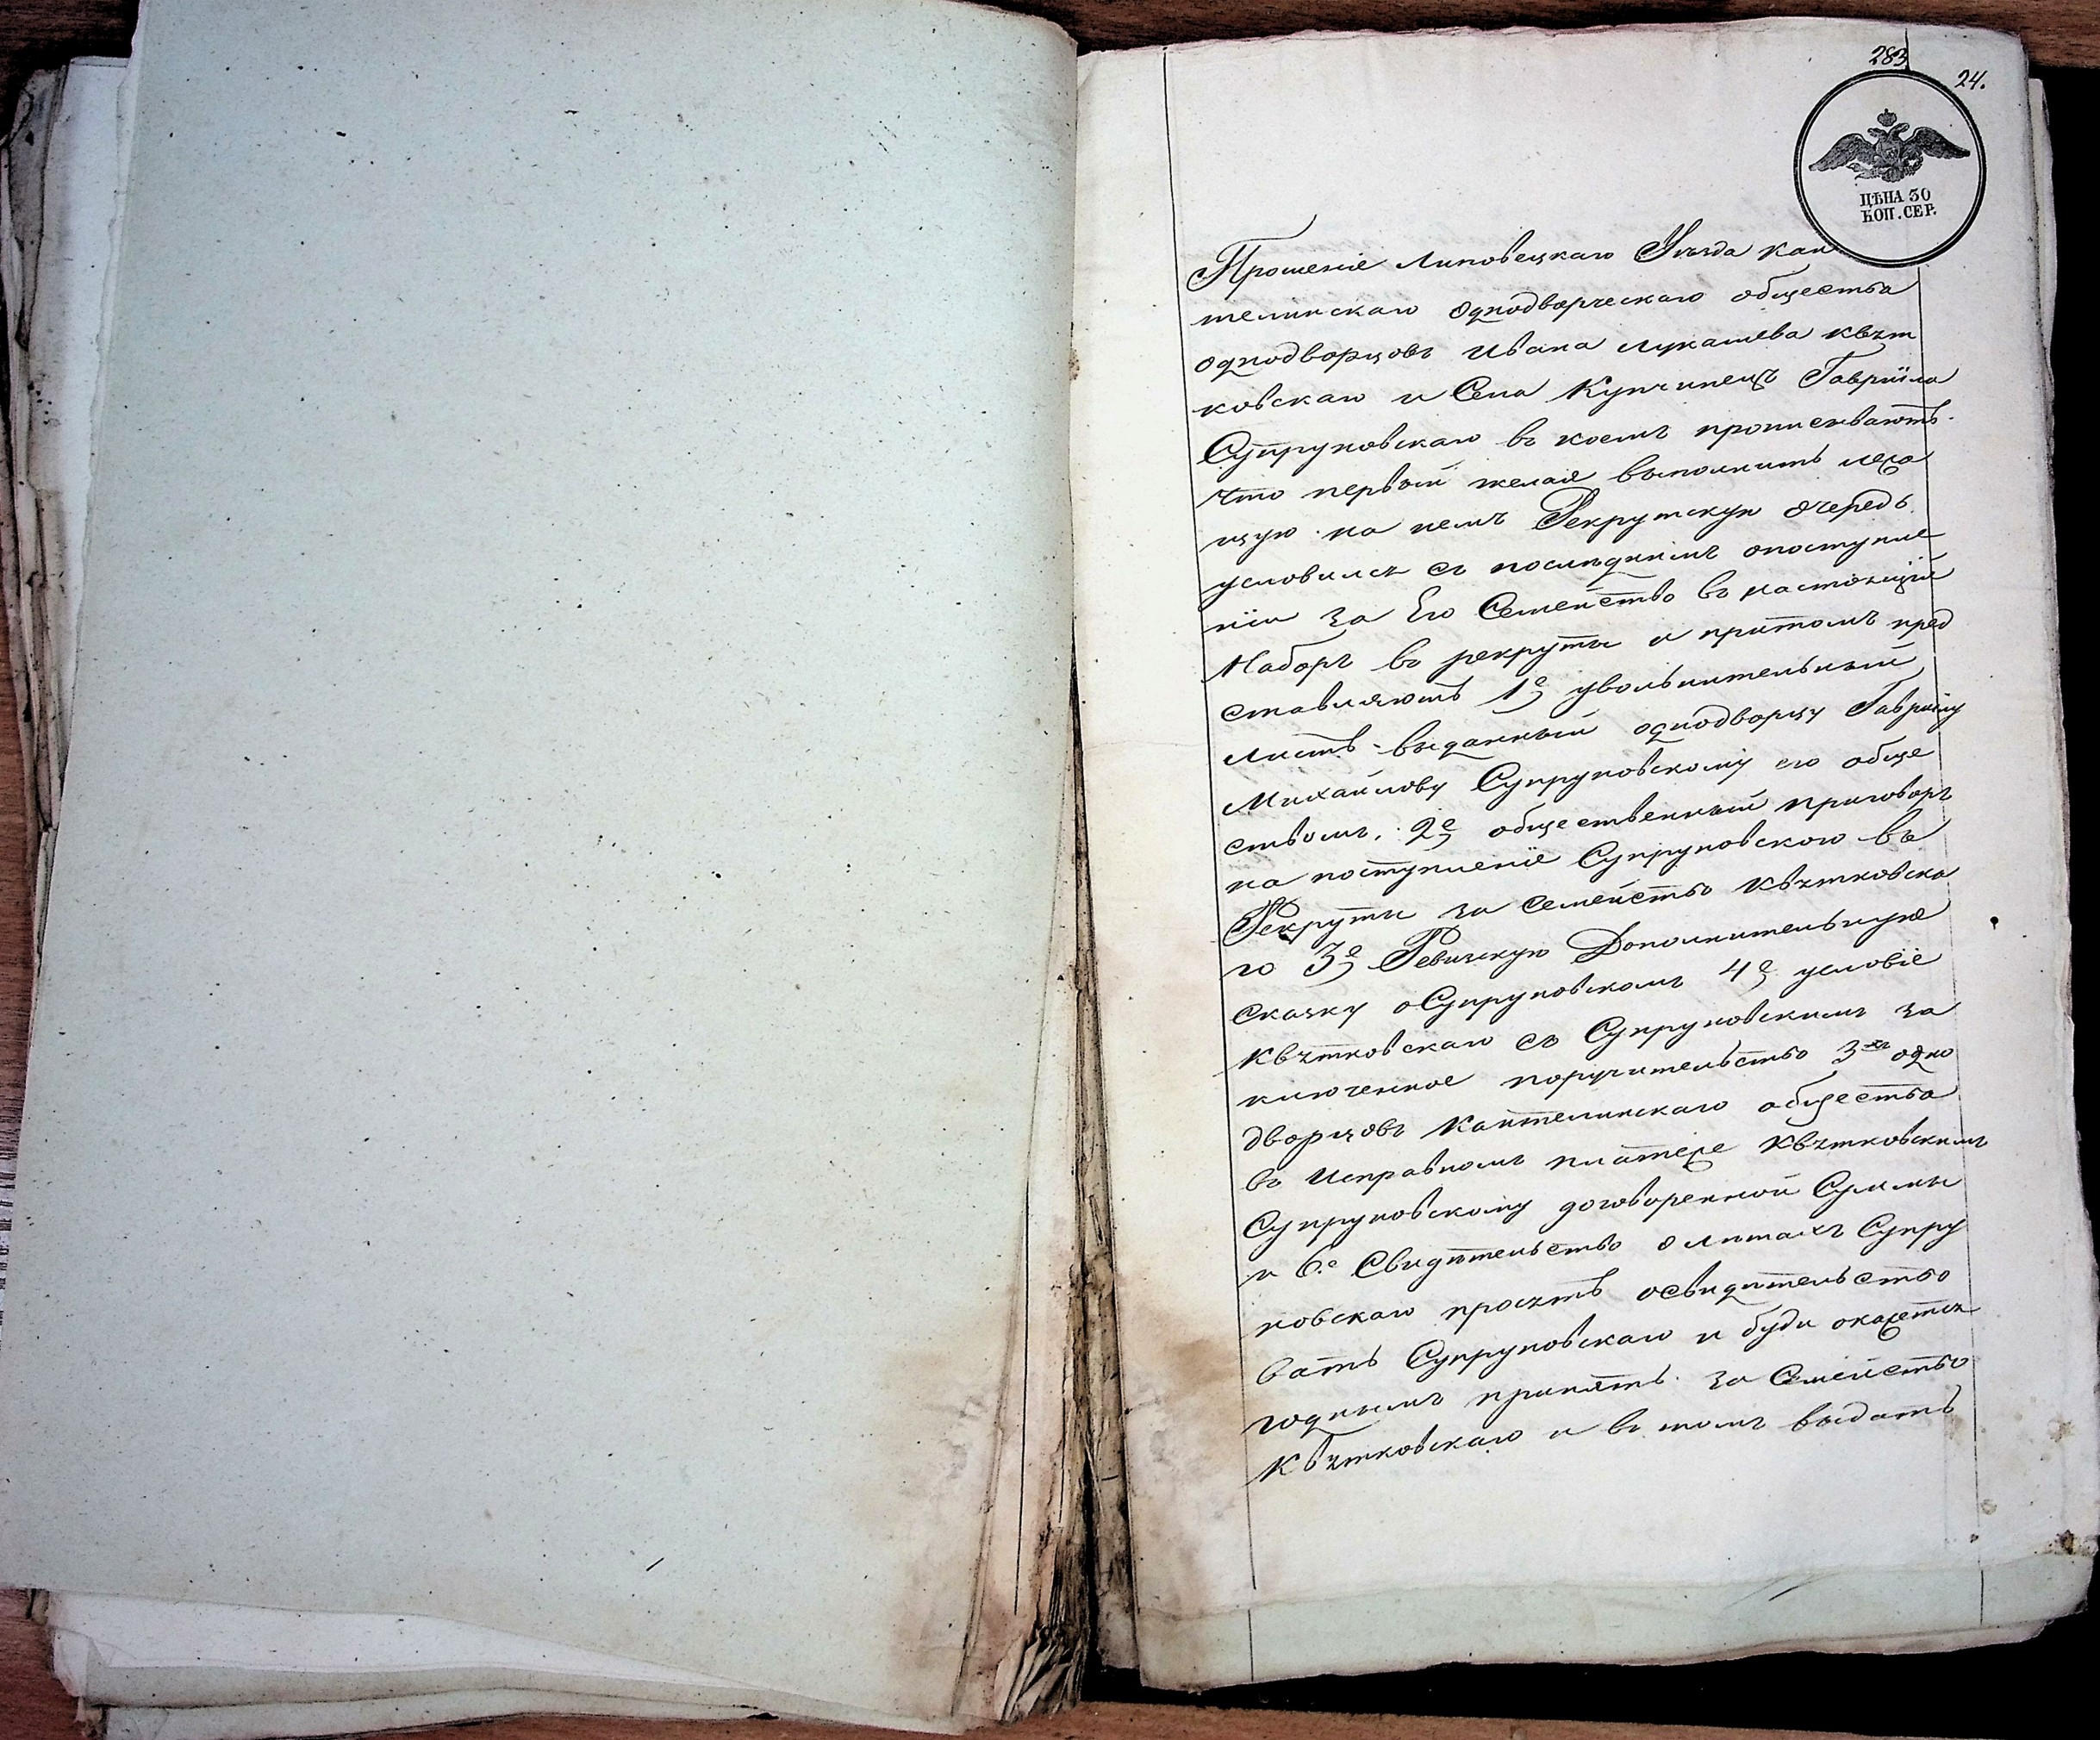 283
24.
ЦѢНА 30
КОП. СЕР.
Прошеніе Липовецкаго Уѣзда кан
телинскаго однодворческаго общества
однодворцовъ Ивана Лукашева Квят
ковскаго и Села Купчинецъ Гавріила
Супруновскаго въ коемъ прописываютъ
что первый желая выполнить лежа
щую на немъ Рекрутскую очередь
условился съ послѣднимъ опоступле
ніи за Его Семейство въ настоящій
Наборъ въ рекруты и притомъ пред
ставляютъ 1е увольнительный
листъ выданный однодворцу Гавріилу
Михайлову Супруновскому его обще
ствомъ, 2е общественный приговоръ
на поступленіе Супруновского въ
Рекруты за Семейство Квятковска
го 3е Ревизскую Дополнительную
Сказку оСупруновскомъ 4е условіе
Квятковскаго съ Супруновскимъ за
ключенное поручительство 3хъ одно
дворцовъ Кантелинскаго общества
въ Исправномъ платеже Квятковскимъ
Супруновскому договоренной Суммы
и 6е Свидѣтельство о лѣтахъ Супру
новскаго просятъ освидѣтельство
вать Супруновскаго и буди окажется
годнымъ принять за Семейство
Квятковскаго и въ томъ выдать